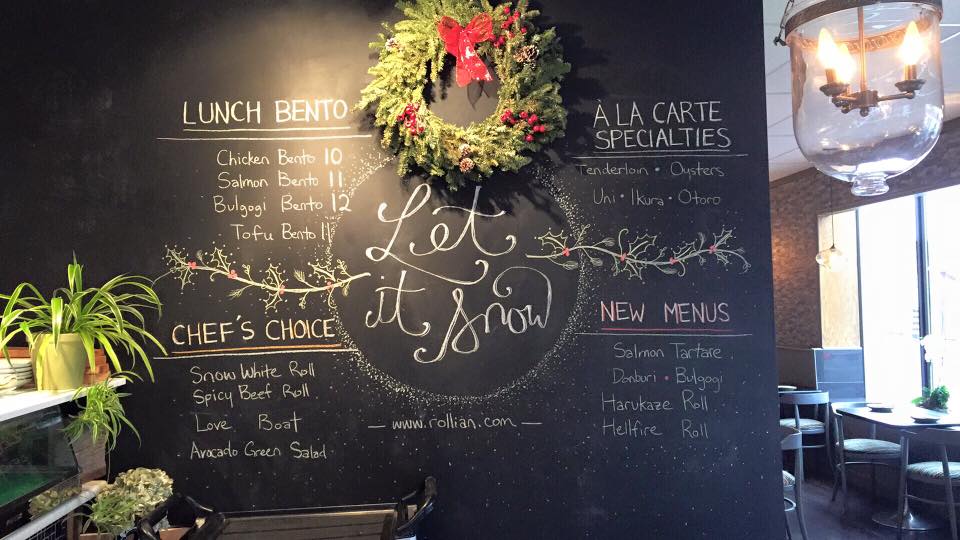 LUNCH BENTO
Chicken Bento 10
Salmon Bento 11
Bulgogi Bento 12
Tofu Bento 11
CHEF'S CHOICE
Snow White Roll
Spicy Beef Roll
Love Boat
Avocado Green Salad
Let
it Snow
— www.rollian.com —
À LA CARTE
SPECIALTIES
Tenderloin • Oysters
Uni • Ikura • Otoro
NEW MENUS
Salmon Tartare
Donburi • Bulgogi
Harukaze Roll
Hellfire Roll